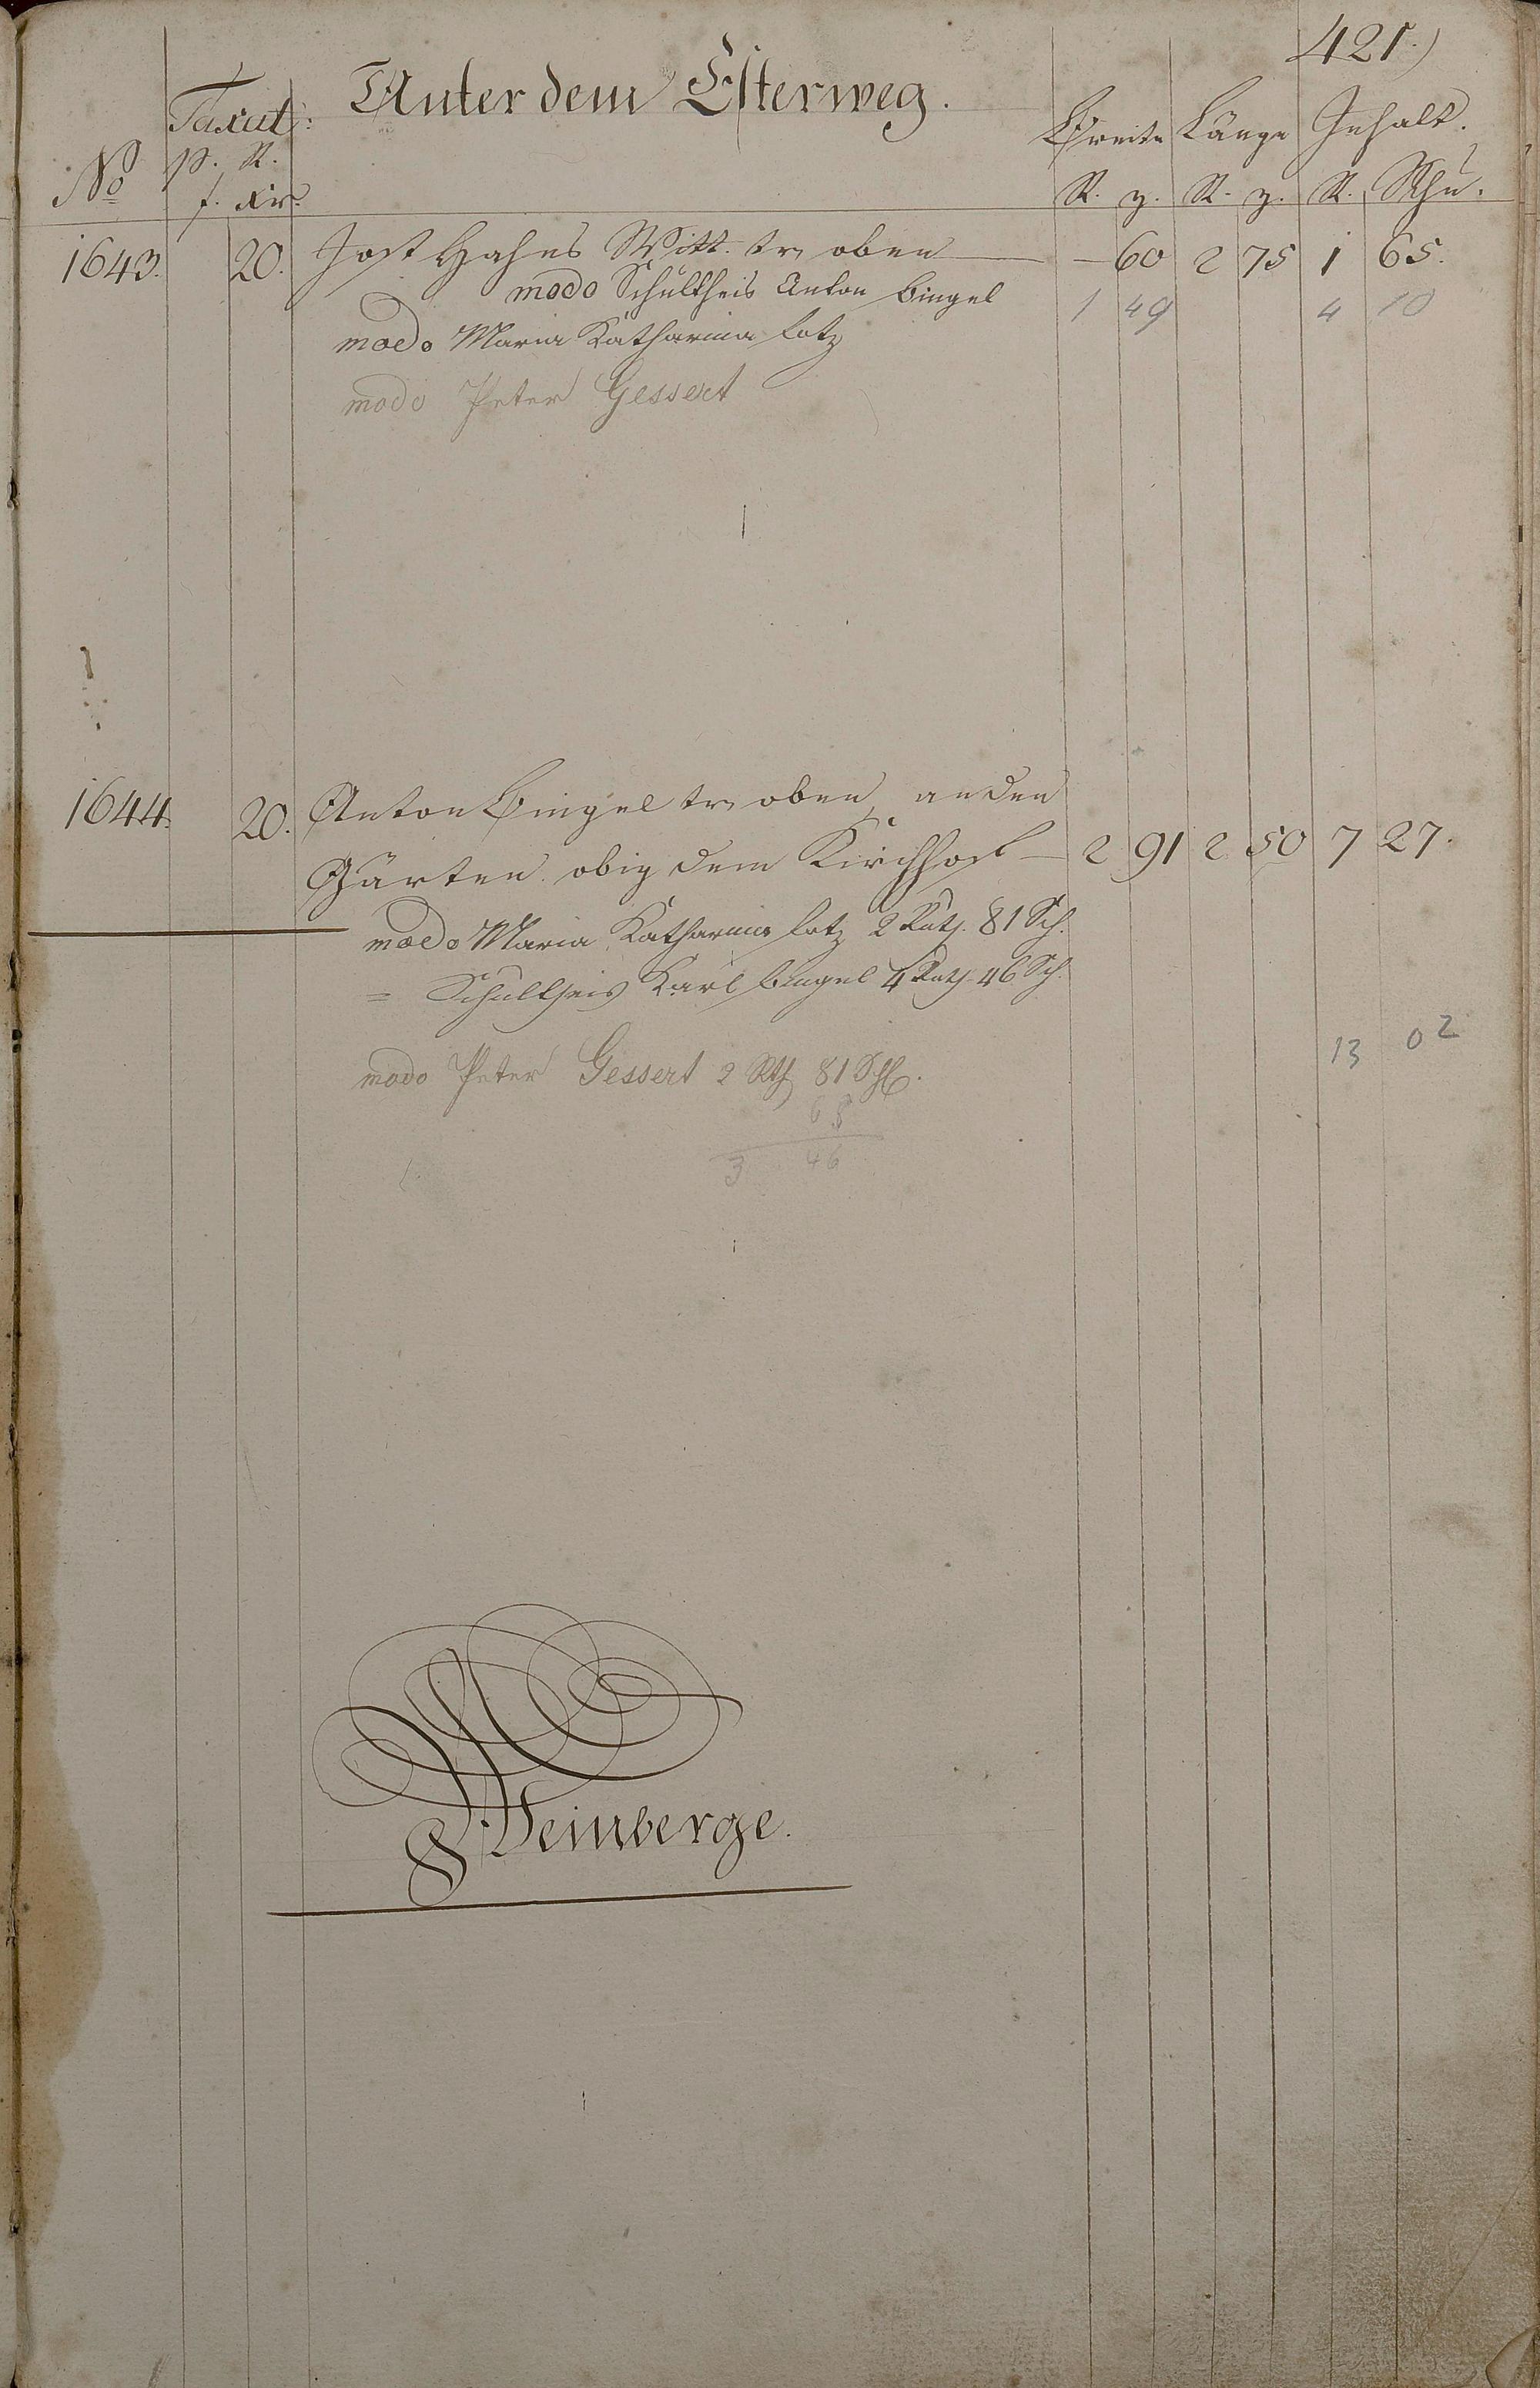 421.)
Unter dem Esterweg.
Taxat: Breite Länge Inhalt.
No p. R. f. xr. R. z. R. z. R. Schu.
1643. 20. Jost Hahns Witt. tr. oben — — 60 2 75 1 65.
modo Schultheis Anton Bingel 1 49 4 10
modo Maria Katharina Lotz
modo Peter Gessert
1644. 20. Anton Bingel tr. oben, an den
Gärten obig dem Kirchhof — 2 91 2 50 7 27.
modo Maria Katharina Lotz 2 Ruth. 81 Sch.
= Schultheis Karl Bingel 4 Ruth. 46 Sch.
13 02
modo Peter Gessert 2 Rth 81 Sch.
65
3 46
Weinberge.